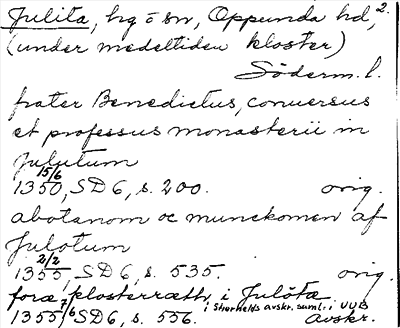 Julita, hg o sn, Oppunda hd, 2.
(under medeltiden kloster)
Söderm. l.
frater Benedictus, conuersus
et professus monasterii in
Julutum
15/6
1350, SD 6, s. 200. orig.
abotanom oc munckomen af
Julotum
2/2
1355, SD 6, s. 535. orig.
foræ klosterræth, i Julöta
1355 7/6 SD 6, s. 556. i Skarhelds avskr. saml. i UUB avskr.